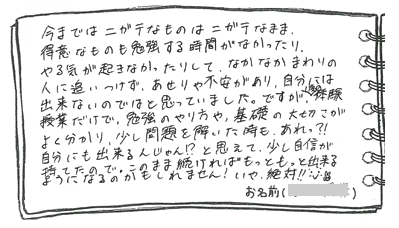 今まではニガテなものはニガテなまま、
得意なものも勉強する時間がなかったり、
やる気が起きなかったりして、なかなかまわりの
人に追いつけず、あせりや不安があり、自分には
出来ないのではと思っていました。ですが、体験
授業だけで、勉強のやり方や、基礎の大切さが
よく分かり、少し問題を解いた時も、あれっ?!
自分にも出来るんじゃん!?と思えて、少し自信が
持てたので、このまま続ければもっともっと出来る
ようになるのかもしれません!いや、絶対!!
お名前( )